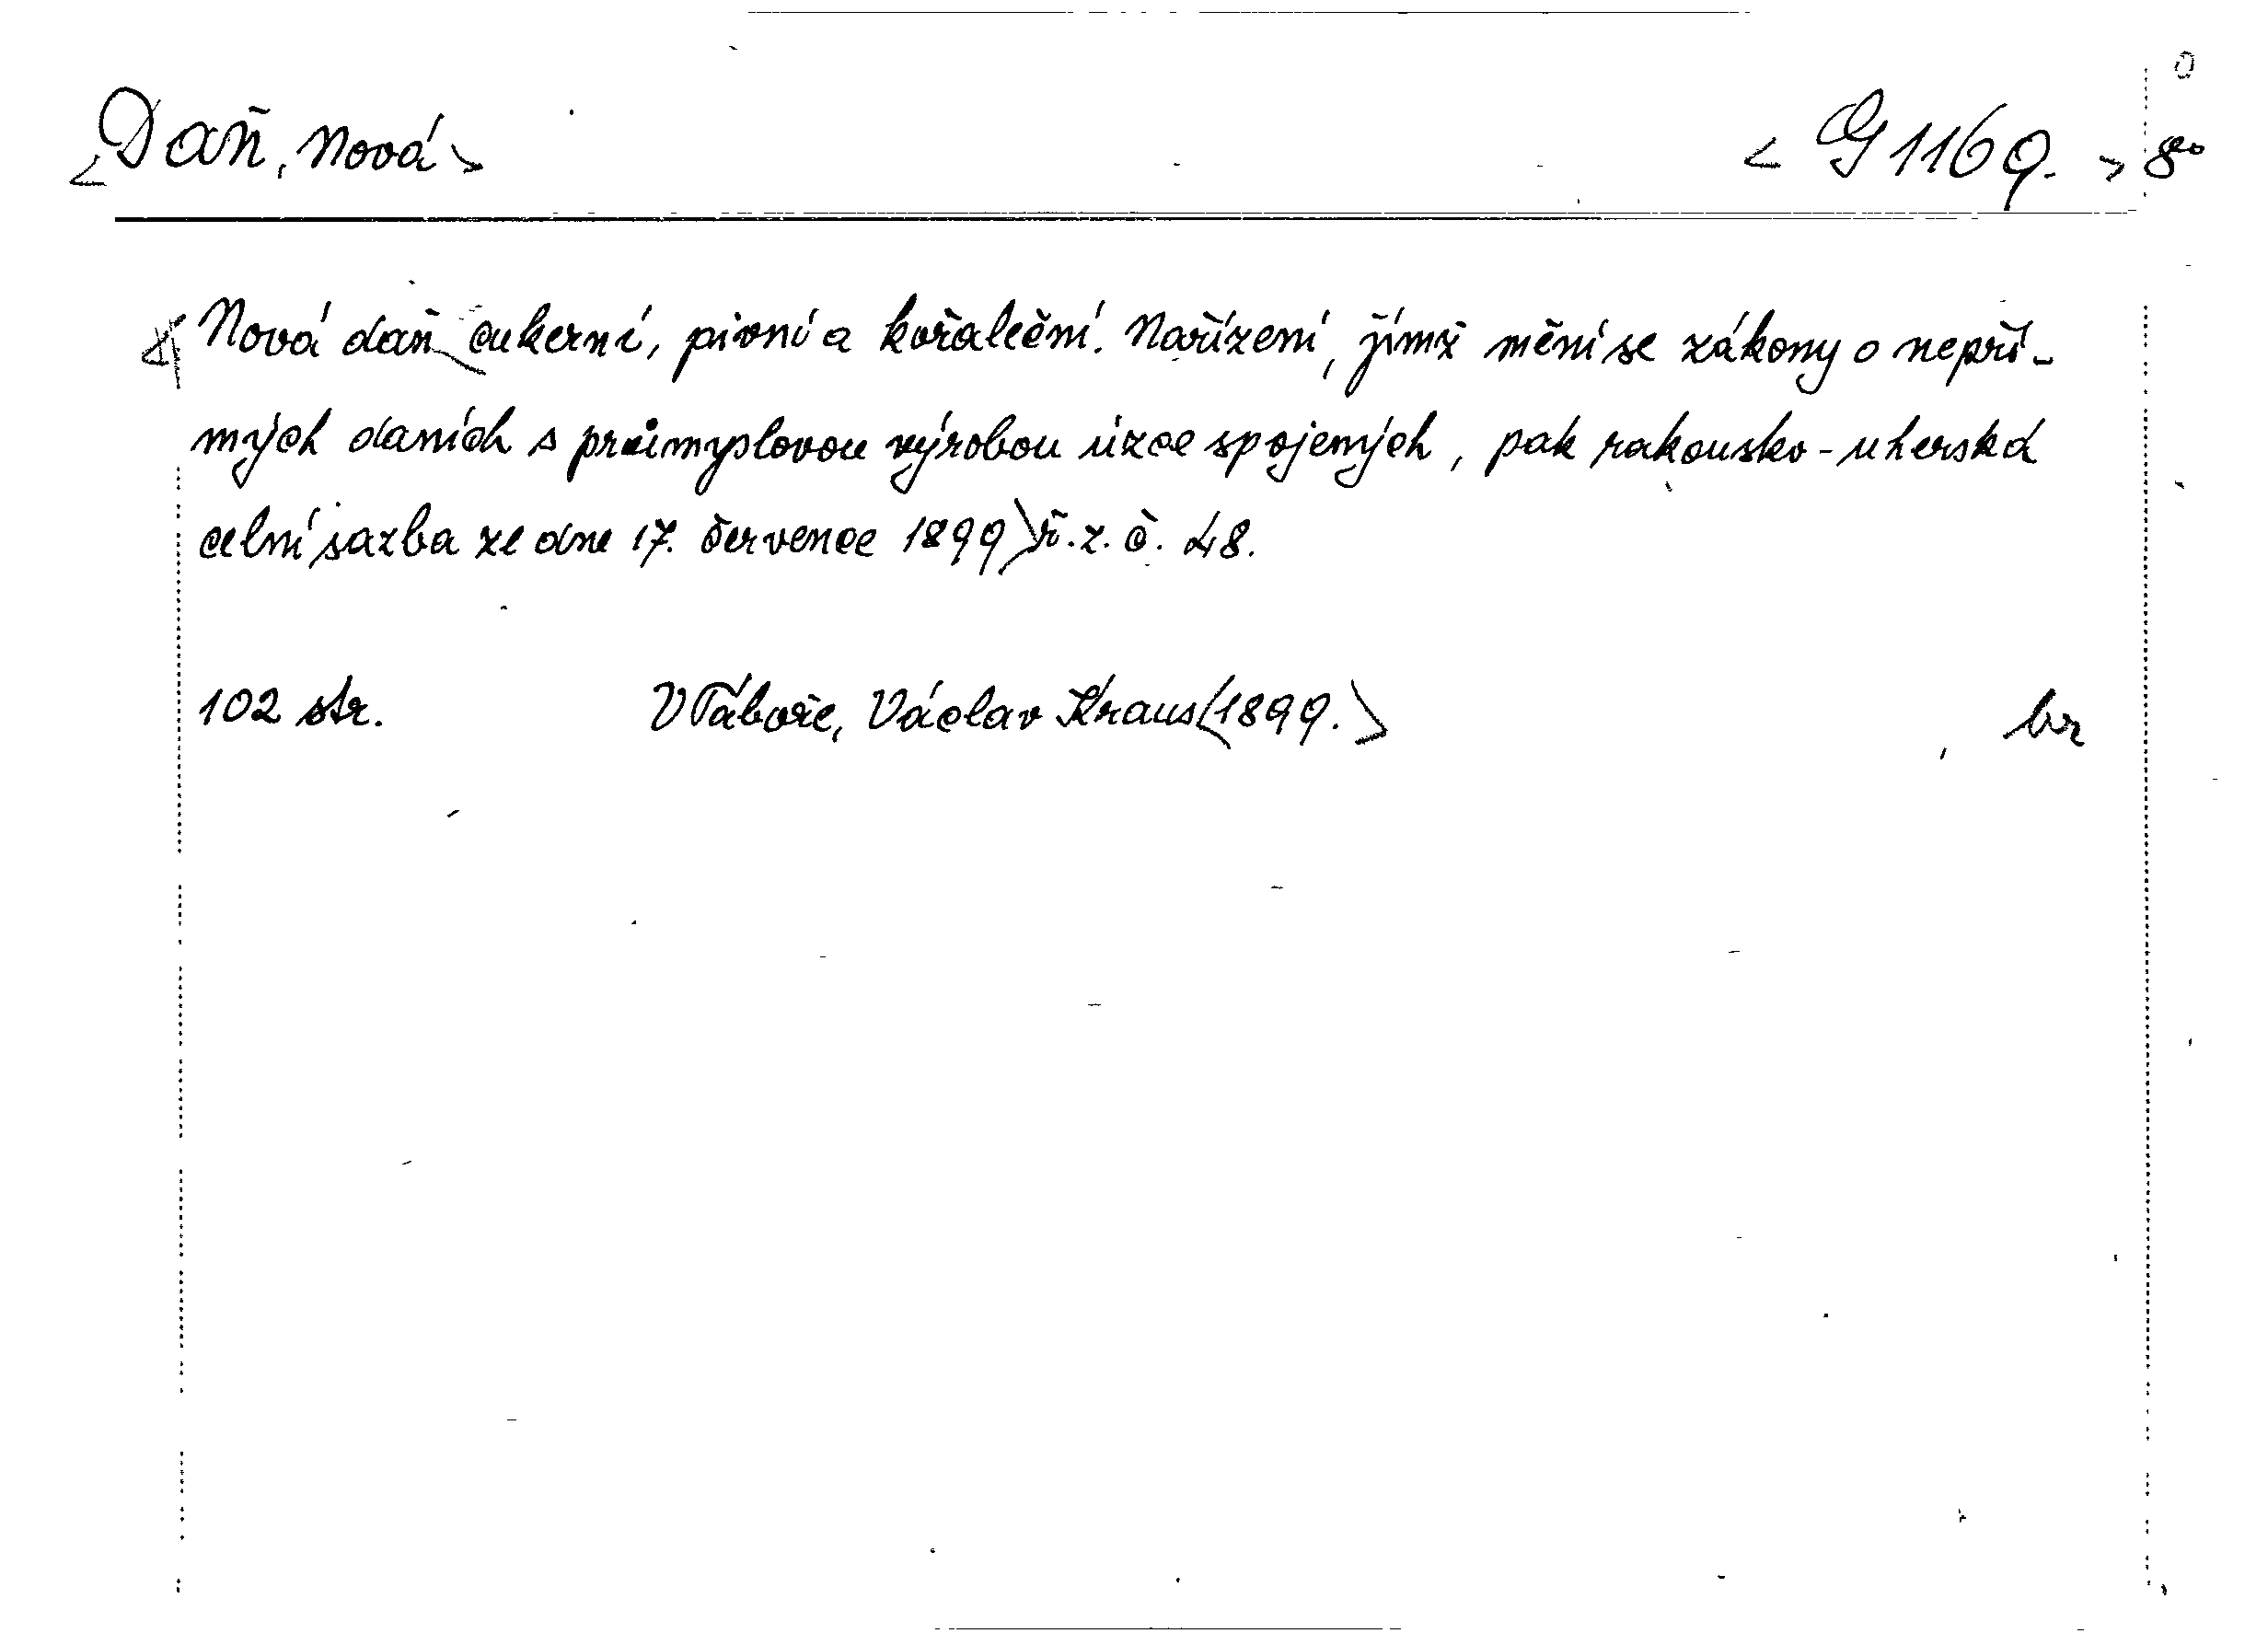 <Daň, Nová> <G 1169.> 8°
Nová daň cukerní, pivní a kořaleční. Nařízení, jímž mění se zákony o nepří-
mých daních s průmyslovou výrobou úzce spojených, pak rakousko-uherská
celní sazba ze dne 17. července 1899 ř. z. č. 48.
102 str. V Táboře, Václav Kraus (1899.> br